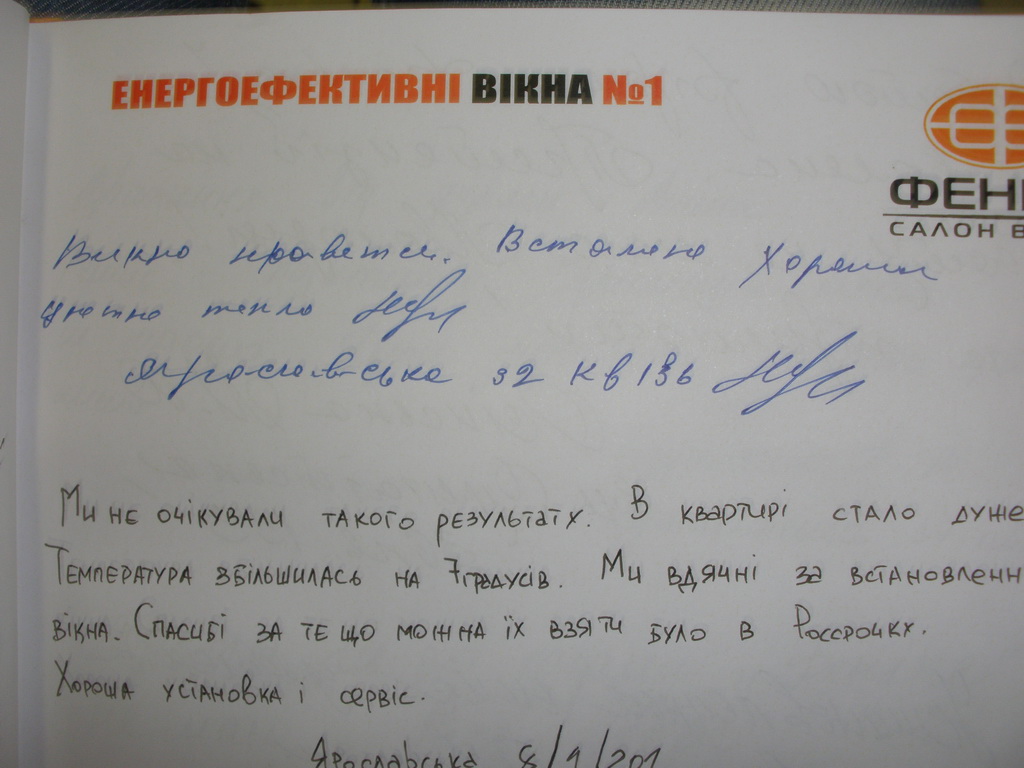 ЕНЕРГОЕФЕКТИВНІ ВІКНА №1
ФЕНІ
САЛОН В
Викно нраветси. Встомено Хорошы
уютно тепло
Ярославська 32 кв 136
Ми не очікували такого результату. В квартирі стало дуже
Температура збільшилась на 7градусів. Ми вдячні за встановленн
вікна. Спасибі за те що можна їх взяти було в Россрочку.
Хороша установка і сервіс.
Ярославська 8/1/201